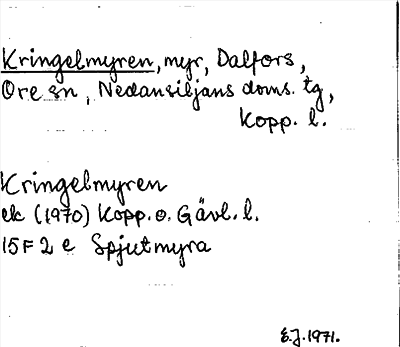 Kringelmyren, myr, Dalfors,
Ore sn, Nedansiljans doms. tg,
Kopp. l.
Kringelmyren
ek (1970) Kopp. o. Gävl. l.
15F 2 e Spjutmyra
E.J. 1971.